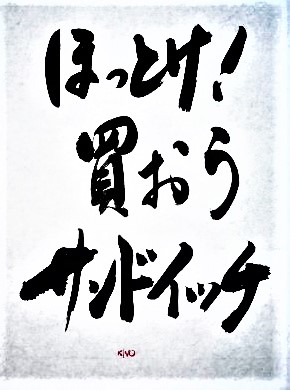 ほっとけ!
買おう
サンドイッチ
KIVO